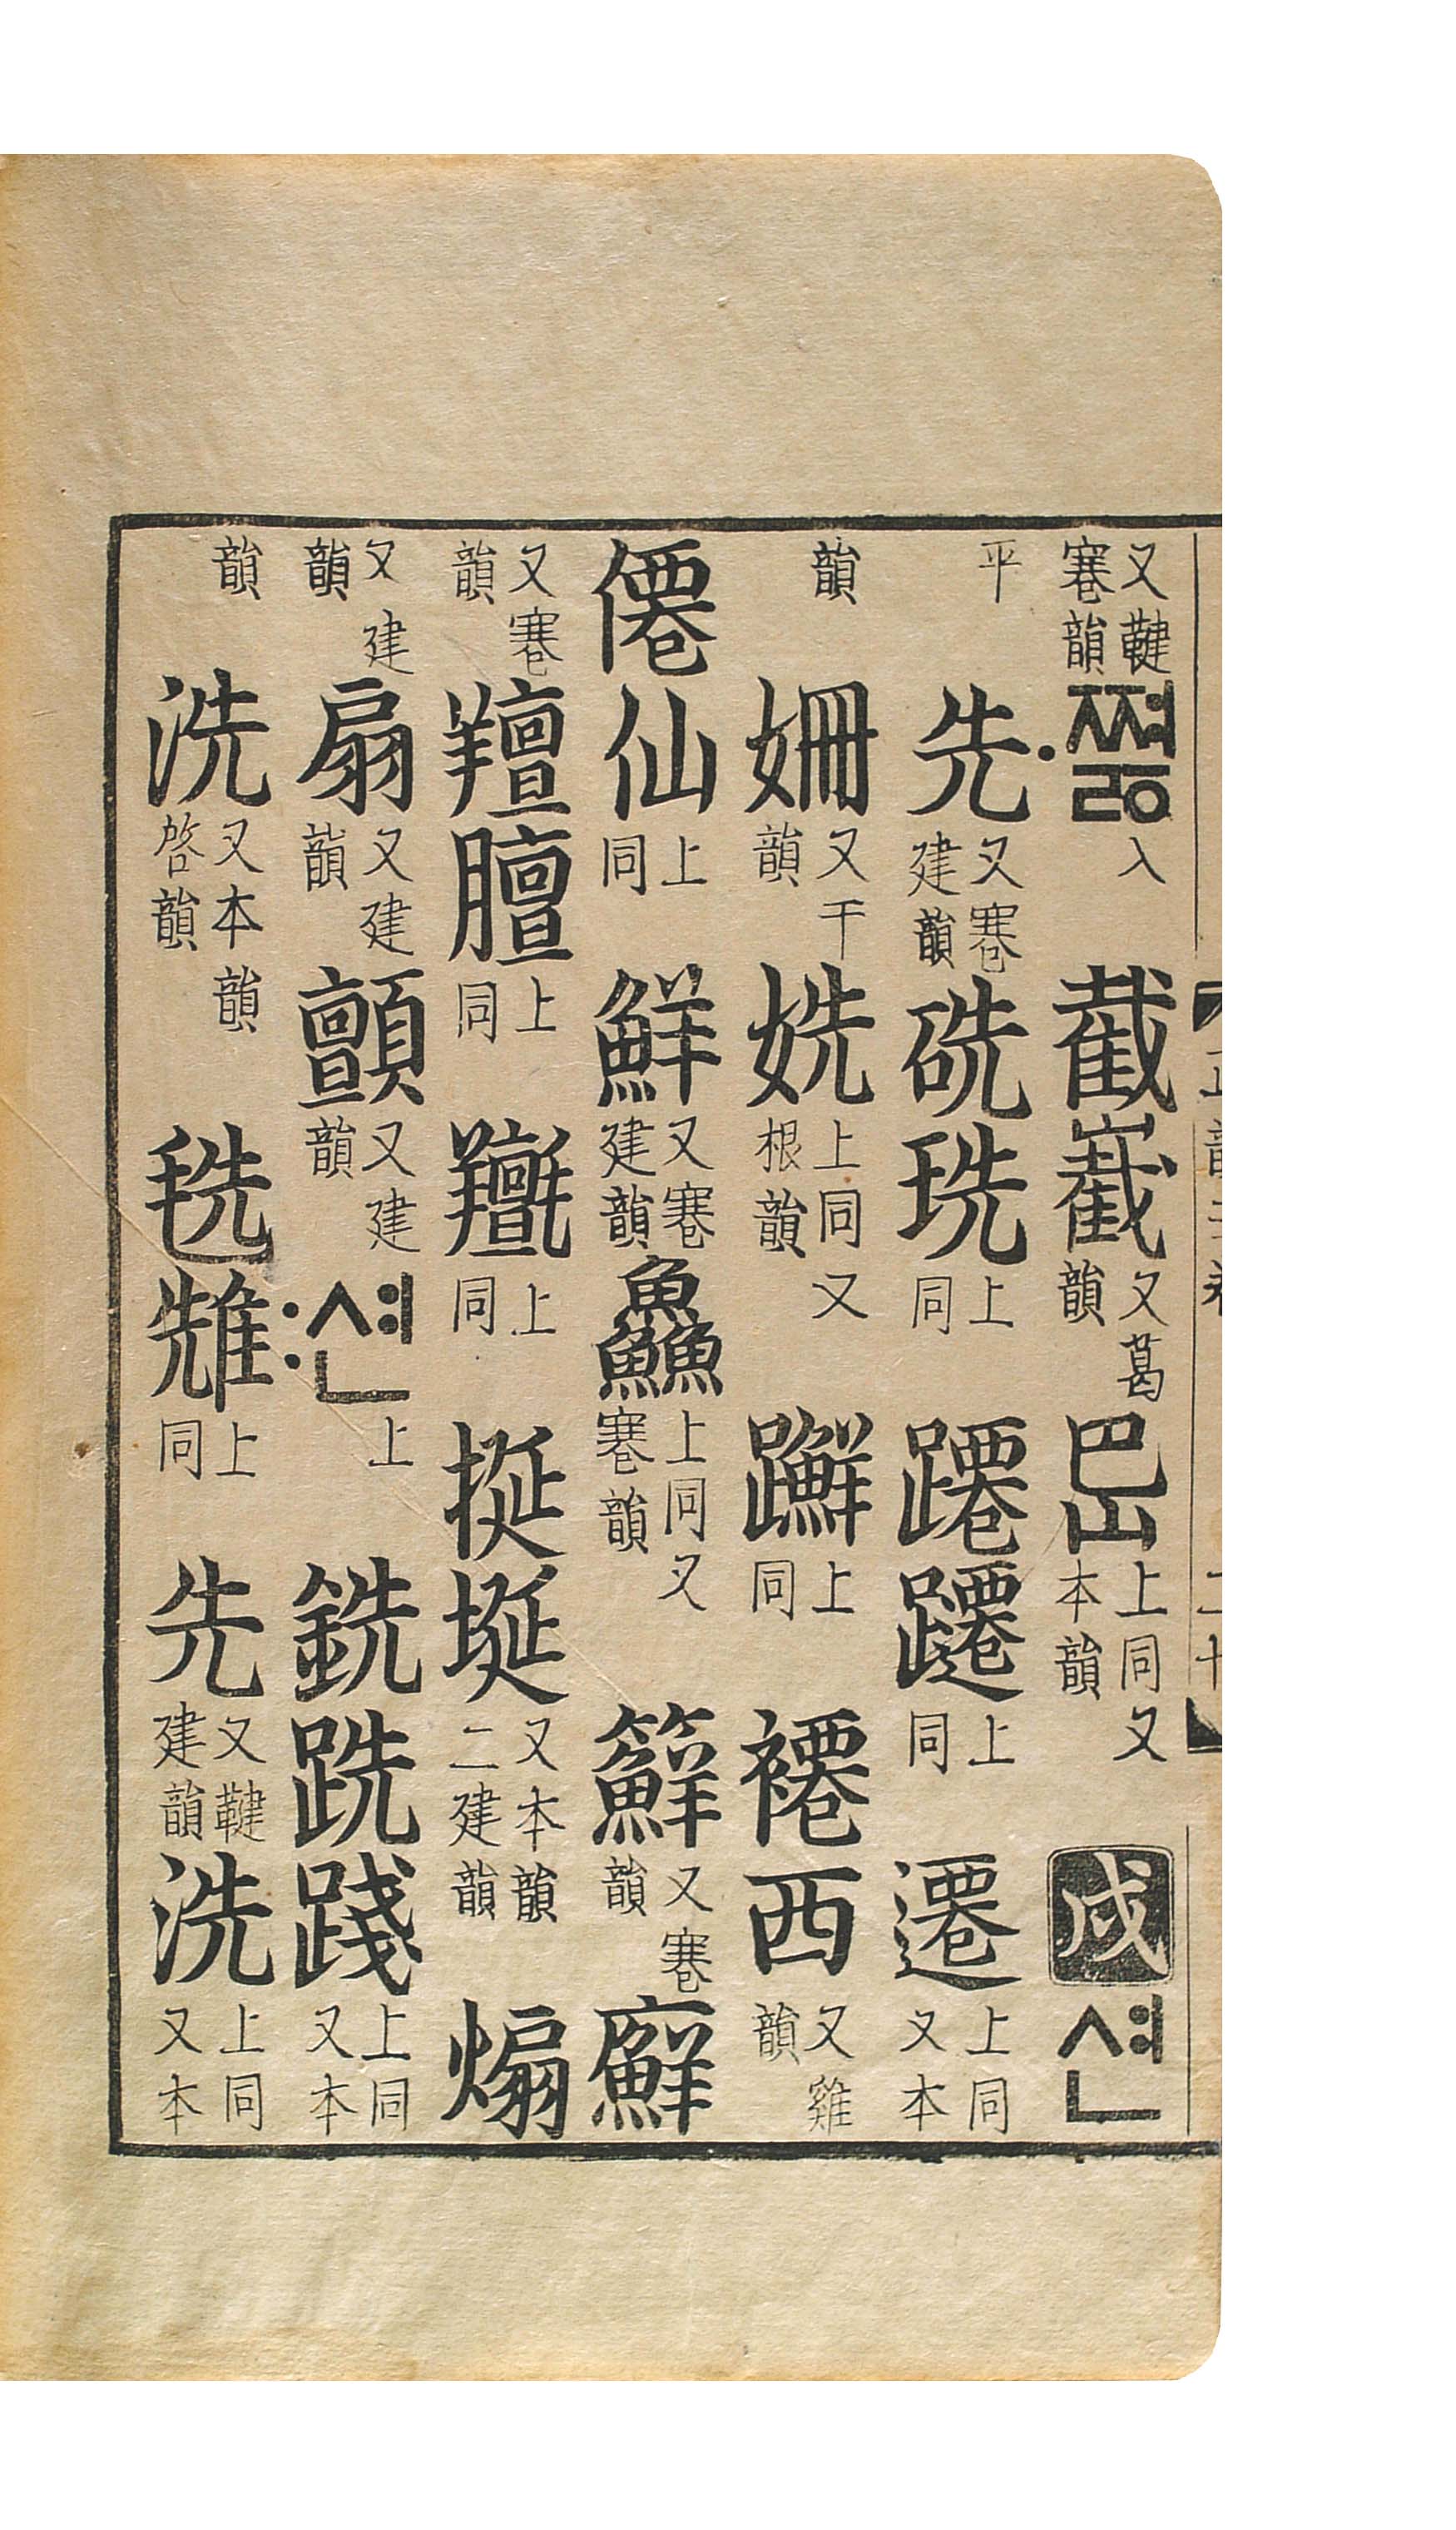 又鞬寋韻·쪄ᇙ入截嶻又葛韻上同又本韻戌션
平先又寋建韻珗上同蹮躚上同遷上同又本
韻姍又干韻姺上同又根韻上同褼西又雞韻
僊仙上同鮮又寋建韻鱻上同又寋韻䉳又寋韻廯
又寋韻羶膻上同上同挻埏又本韻二建韻煽
又建韻扇又建韻顫又建韻:션上銑跣踐上同又本
韻洗又本韻啓韻毨上同先又鞬建韻洗上同又本